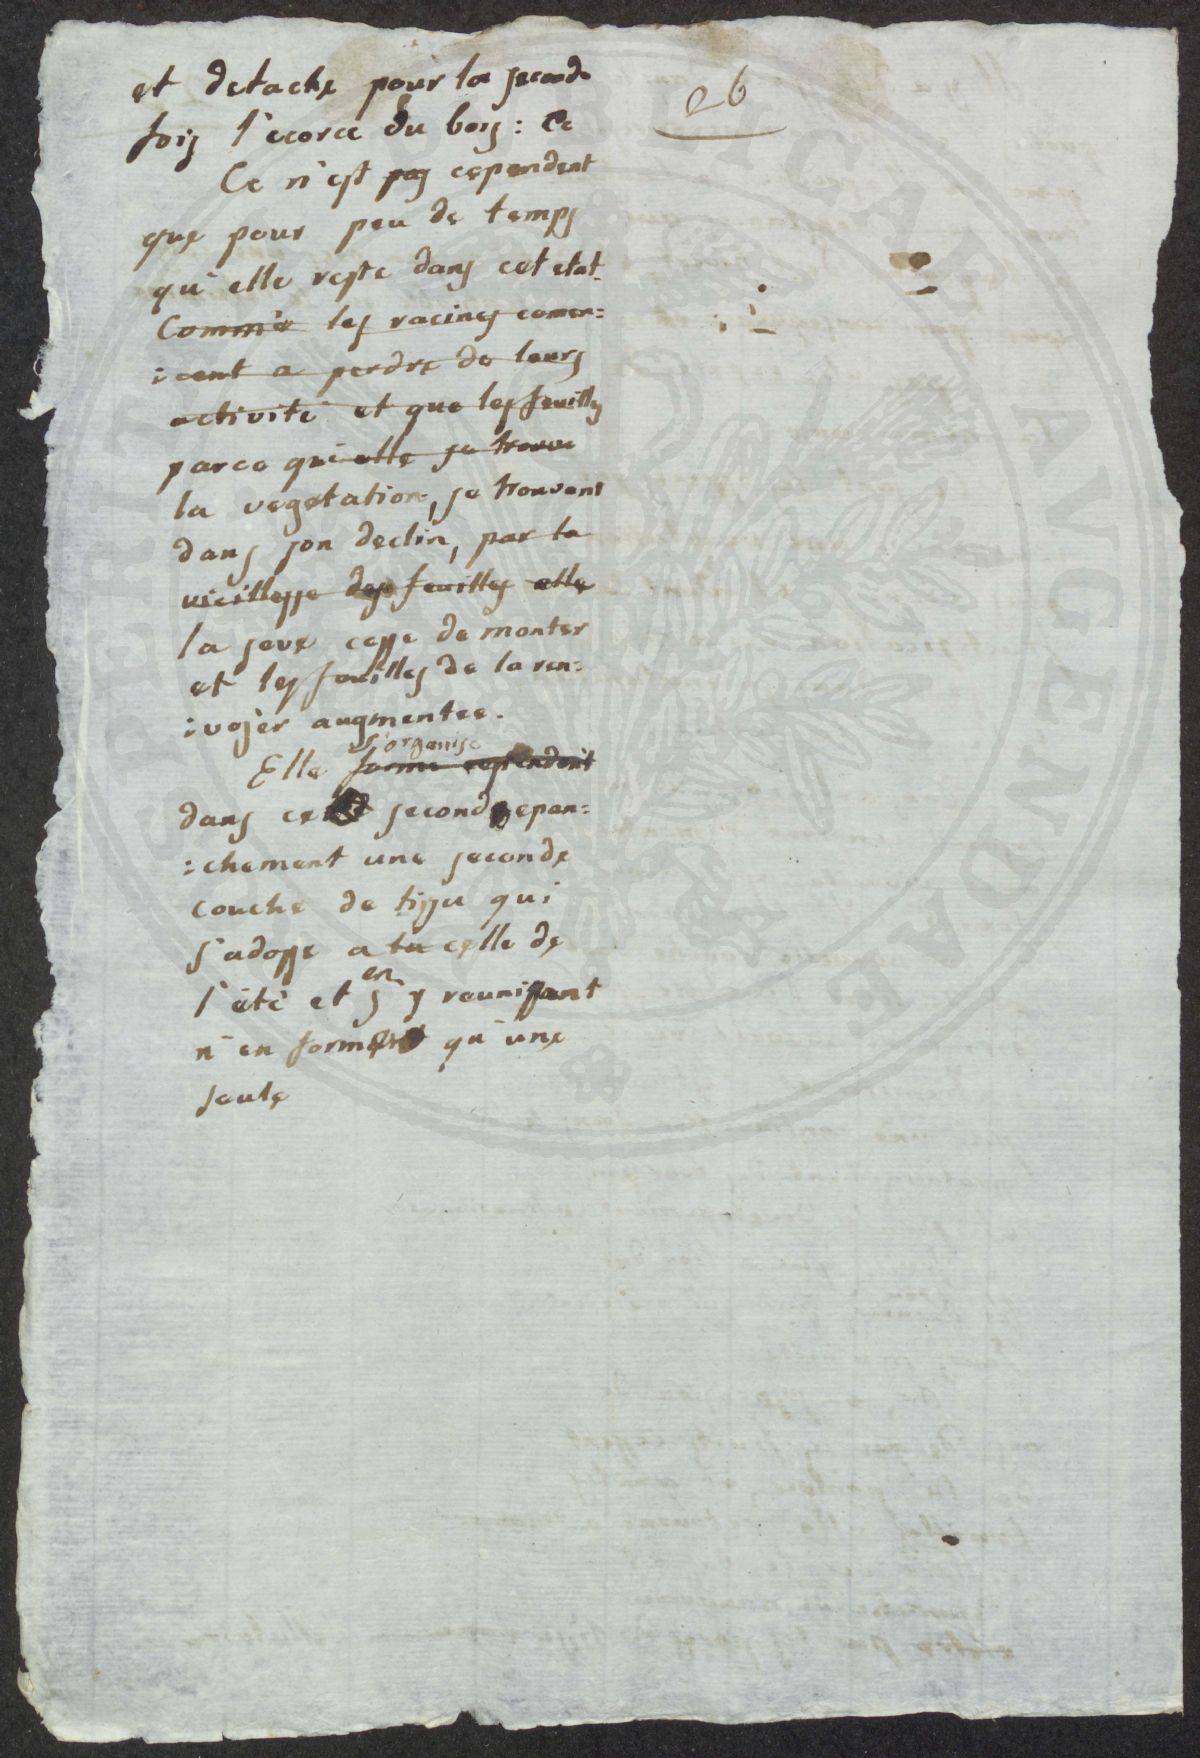 26
et detache pour la seconde
fois l'ecorce du bois : Ce
Ce n'est pas cependent
que pour peu de temps
qu'elle reste dans cet etat.
Comme les racines comen:
:cent a perdre de leurs
activité et que les feuilles
parce qu'elle se trouve
la vegetation, se trouvant
dans son declin, par la
vieillesse des feuilles elle
la seve cesse de monter
et les feuilles de la ren:
:vojer augmentee.
s'organise
Elle forme cependent
dans ce second epan:
:chement une seconde
couche de tissu qui
s'adosse a la celle de
en
l'été et s'y reunissant
n'en forment qu'une
seule